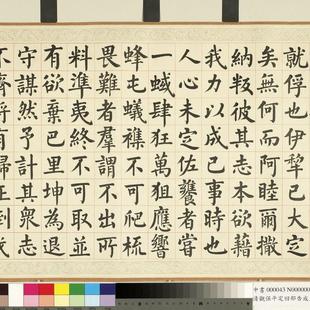 就俘也伊犁已大定
矣無何而阿睦爾撒
納叛彼其志本欲藉
我力以成己事時也
人心未定佐饔者嘗
一蜮肆狂萬狙應響
蜂屯蟻襍不可爬梳
畏難者羣謂不出所
料準夷終不可取並
有欲棄巴里坤為退
守謀然予計其眾志
不齊將有歸正倒戈
中書 000043 N000000
清觀保平定回部告成